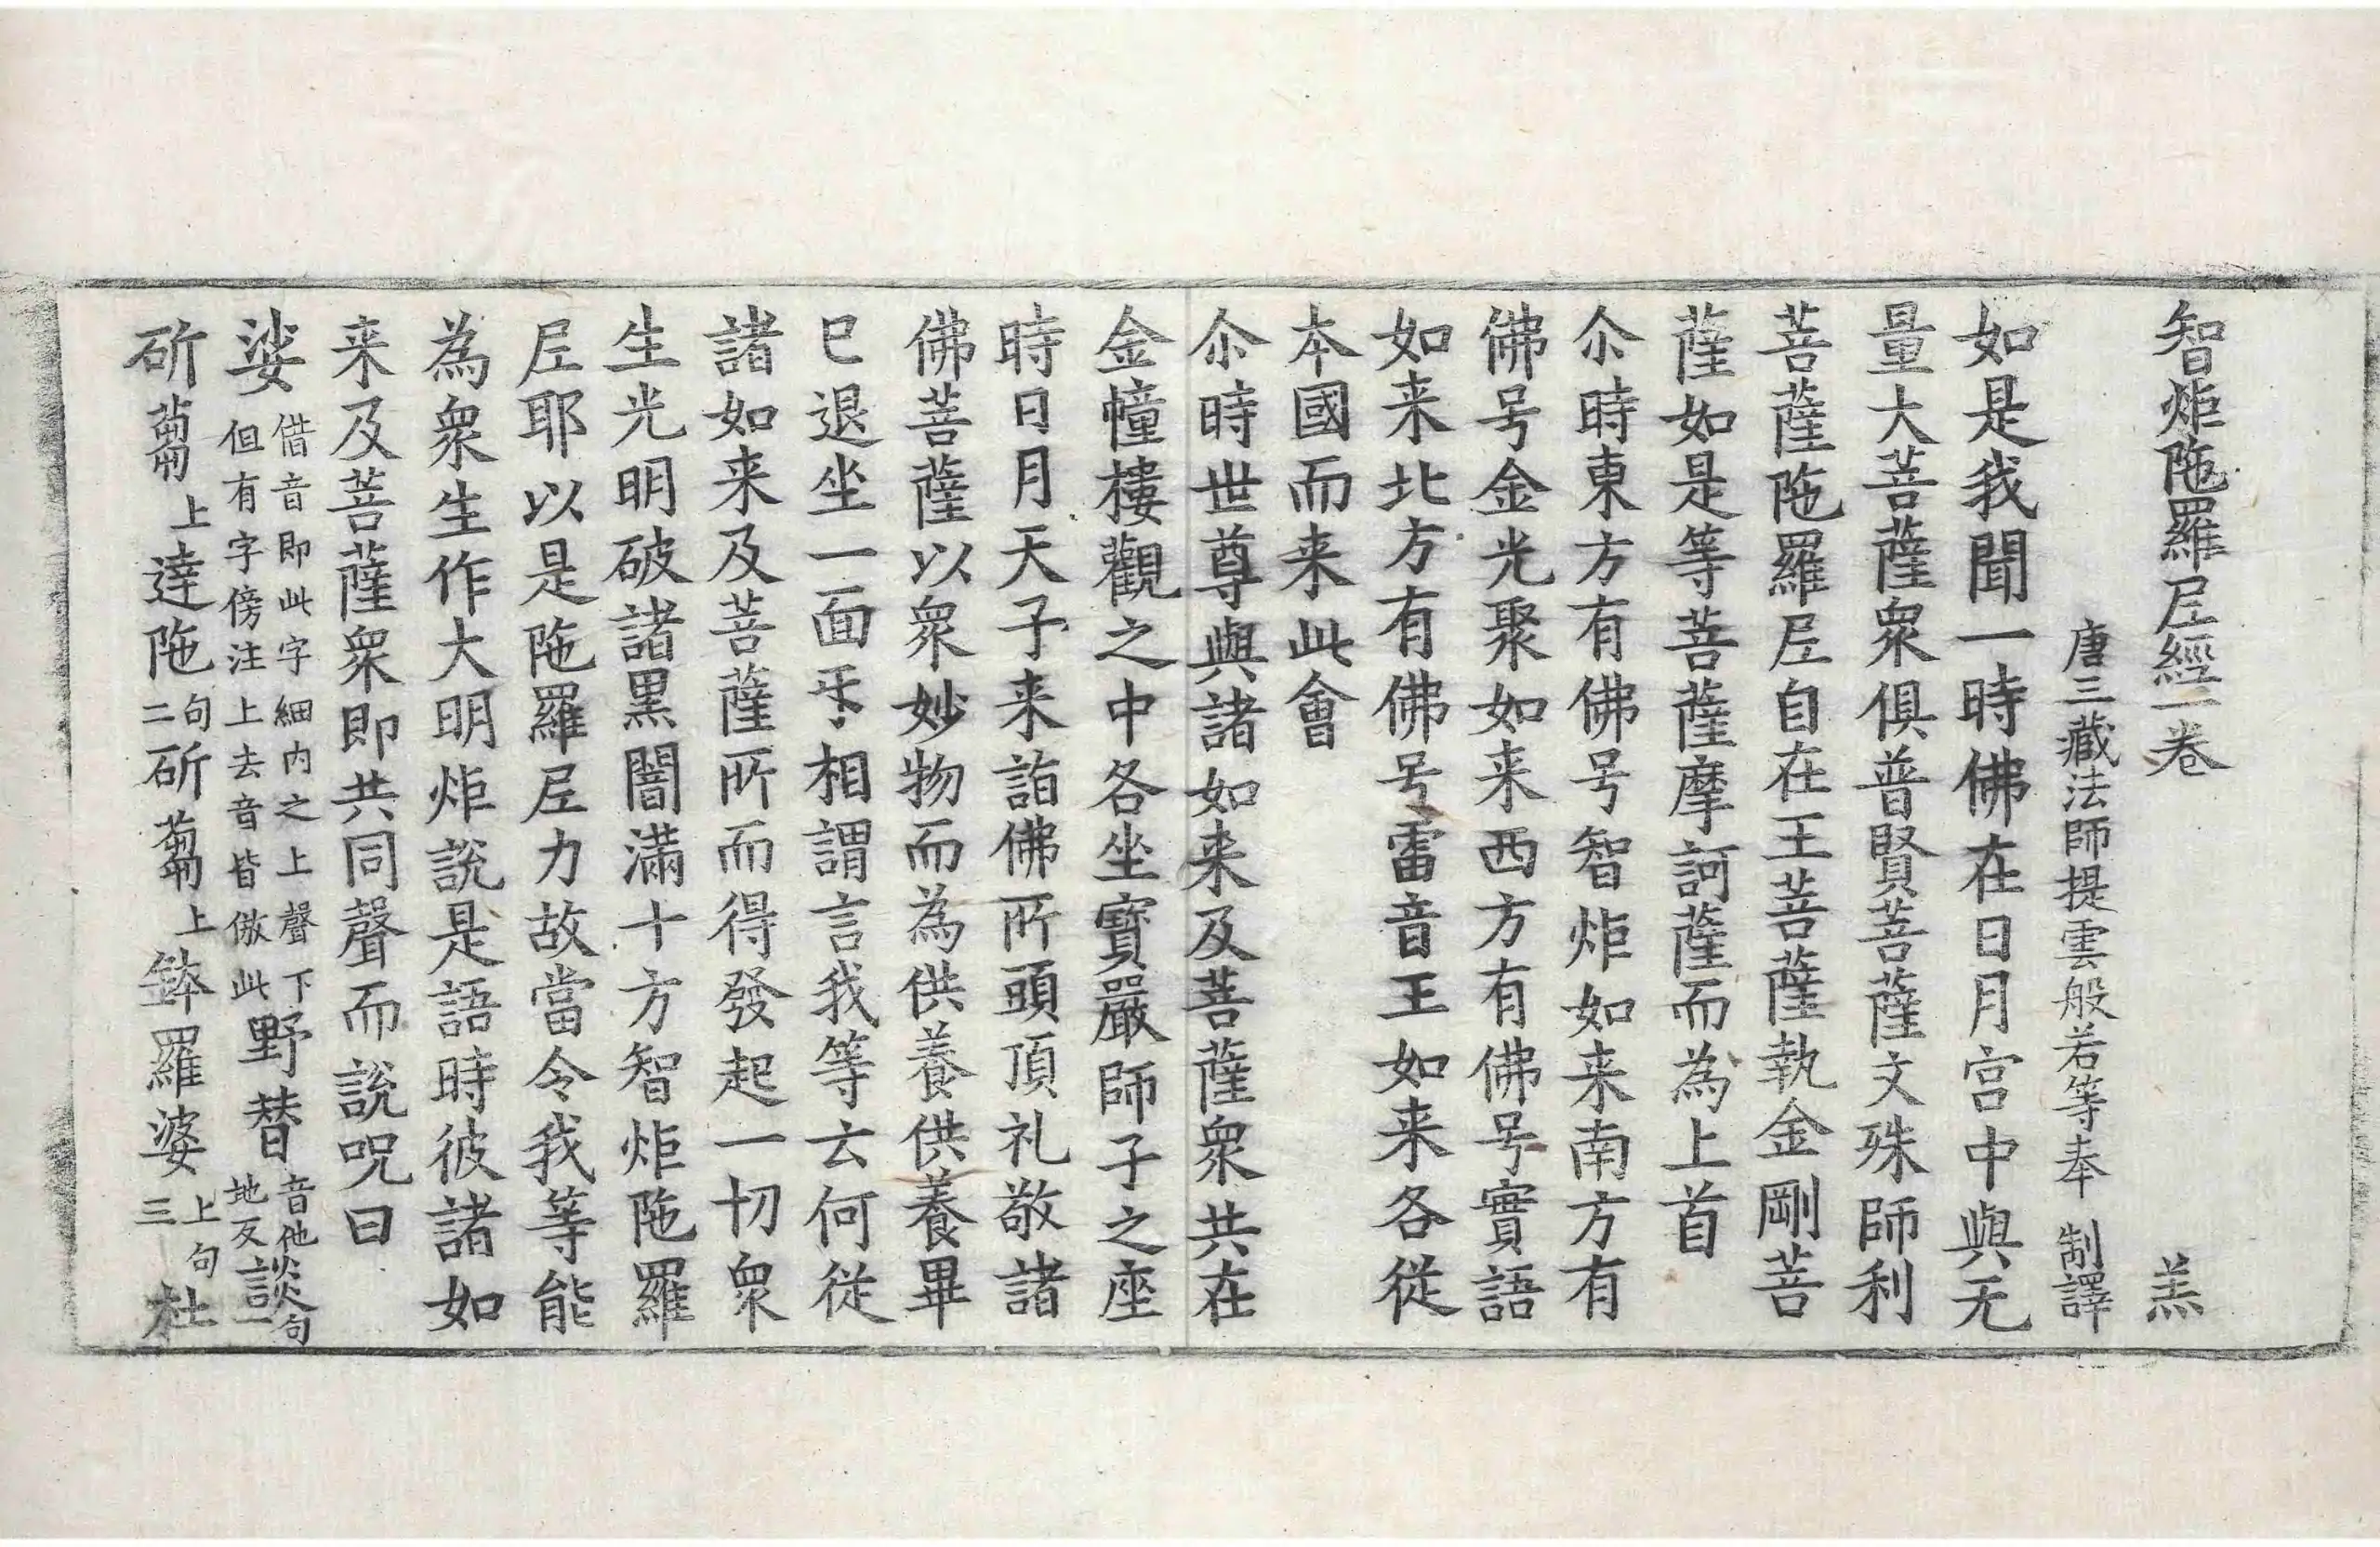 智炬陁羅尼經一卷 羔
唐三藏法師提雲般若等奉 制譯
如是我聞一時佛在日月宫中與无
量大菩薩衆俱普賢菩薩文殊師利
菩薩陁羅尼自在王菩薩執金剛菩
薩如是等菩薩摩訶薩而為上首
尒時東方有佛号智炬如来南方有
佛号金光聚如来西方有佛号實語
如来北方有佛号雷音王如来各従
本國而来此會
尒時世尊與諸如来及菩薩衆共在
金幢樓觀之中各坐寳嚴師子之座
時日月天子来詣佛所頭頂礼敬諸
佛菩薩以衆妙物而為供養供養畢
已退坐一面𠃨相謂言我等云何従
諸如来及菩薩所而得發起一切衆
生光明破諸黒闇滿十方智炬陁羅
尼耶以是陁羅尼力故當令我等能
為衆生作大明炬說是語時彼諸如
来及菩薩衆即共同聲而說呪曰
娑借音即此字細内之上聲下但有字傍注上去音皆倣此野替音他地反談句一
斫蔔上達陁句二斫蔔上鉢羅婆上句三杜